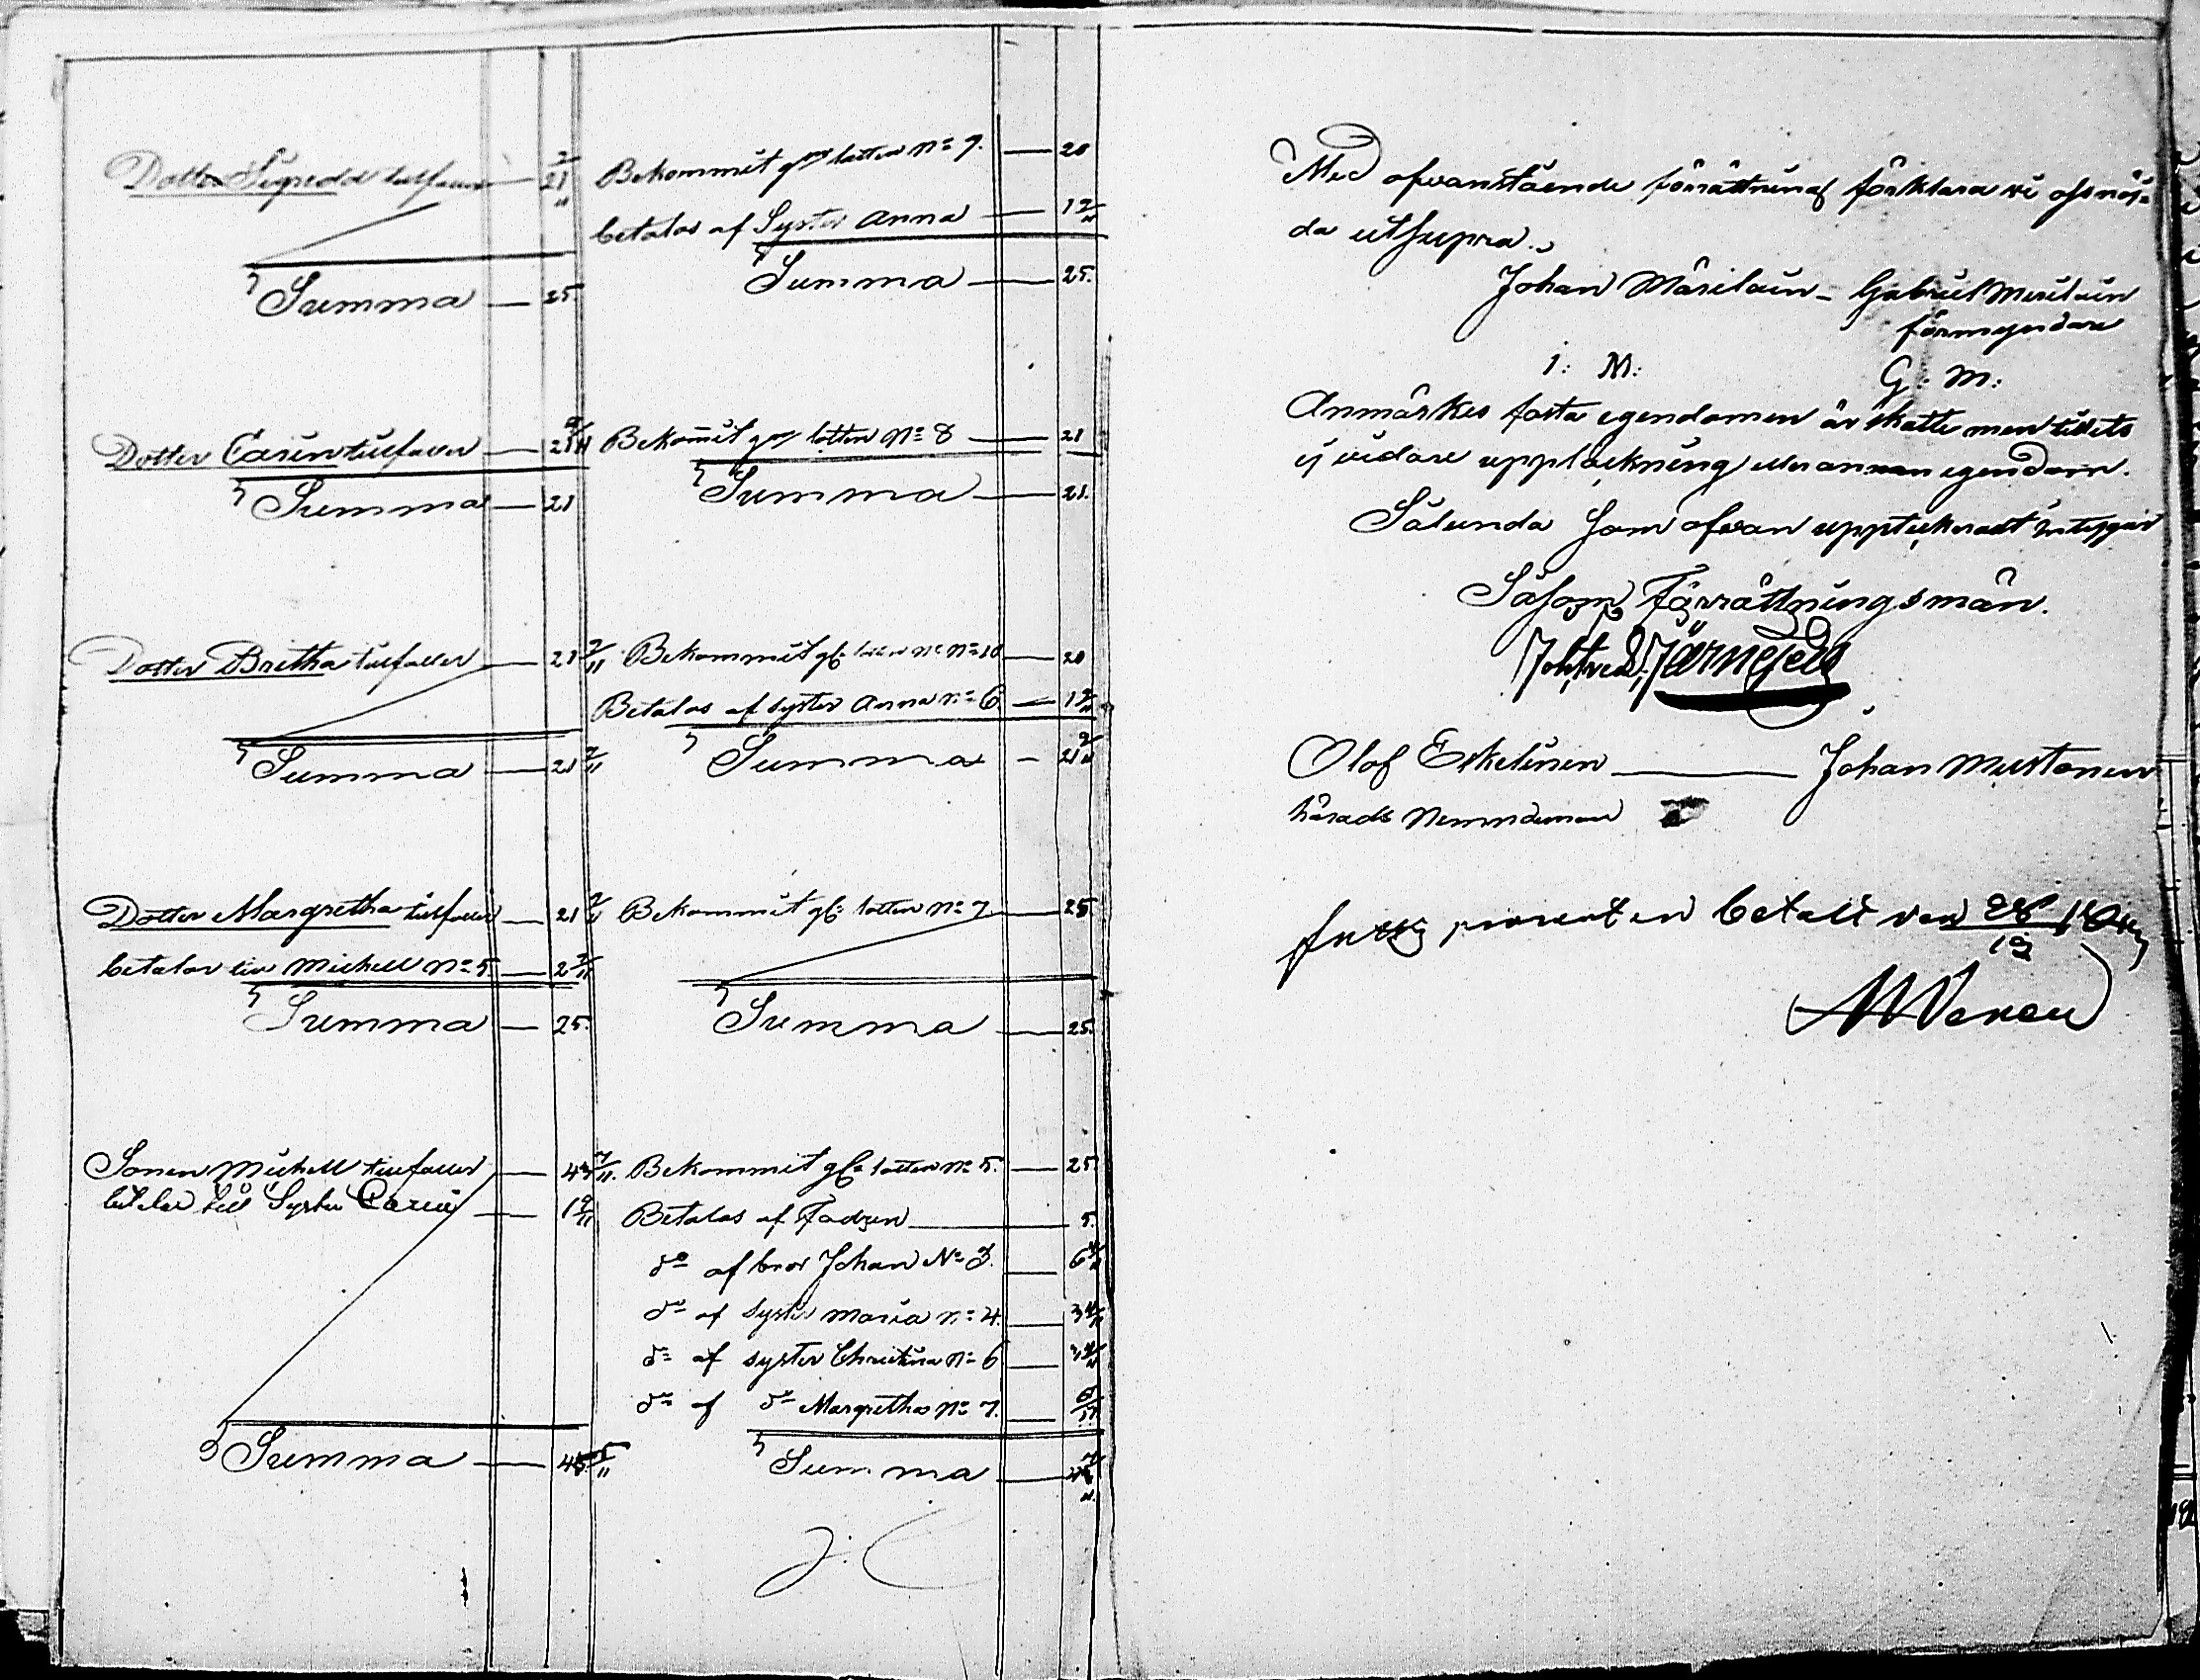 Dotter Sigredd tillfaller — 21 2/11 Bekommit gm lotten No 9. — 20
betalas af Syster Anna — 1 2/11
Summa — 25. Summa — 25.
Dotter Carin tillfaller — 21 2/11 Bekom̅it gm lotten No 8 — 21
Summa — 21 Summa — 21.
Dotter Bretha tillfaller — 21 2/11 Bekommit gl. No 10 — 20
Betalas af syster Anna No 6. — 1 2/11
Summa — 21 2/11 Summa — 21 2/11
Dotter Margretha tillfaller — 21 2/11 Bekommit gl. lotten No 7. — 25
betalar Michell No 5 — 2 2/11
Summa — 25. Summa — 25.
Sonen Michell tillfaller — 43 7/11. Bekommit gl. lotten No 5. — 25
betalar till Syster Carin — 1 2/11 Betalas af Fadren — 5.
do af bror Johan No 3. — 6 4/11
do af syster Maria No 4. — 3 4/11
do af syster Christina No 6 — 3 4/11
do af do Margretha No 7. — 6/11
Summa — 45 Summa —
Med ofvanstående förrättning förklara vi oss nöj=
da ut supra.
Johan Märiläin – Gabriel Meriläin
förmyndare
I: M: G: M:
Anmärkes fasta egendomen är skatte men
ej vidare upptäckning eller annan egendom.
Sålunda som ofvan upptecknadt intygar
Såsom Förrättningsmän.
Joh. Fred. Järnefelt
Olof Eskelinen — Johan Mustonen
härads Nemndeman
procenten betald den